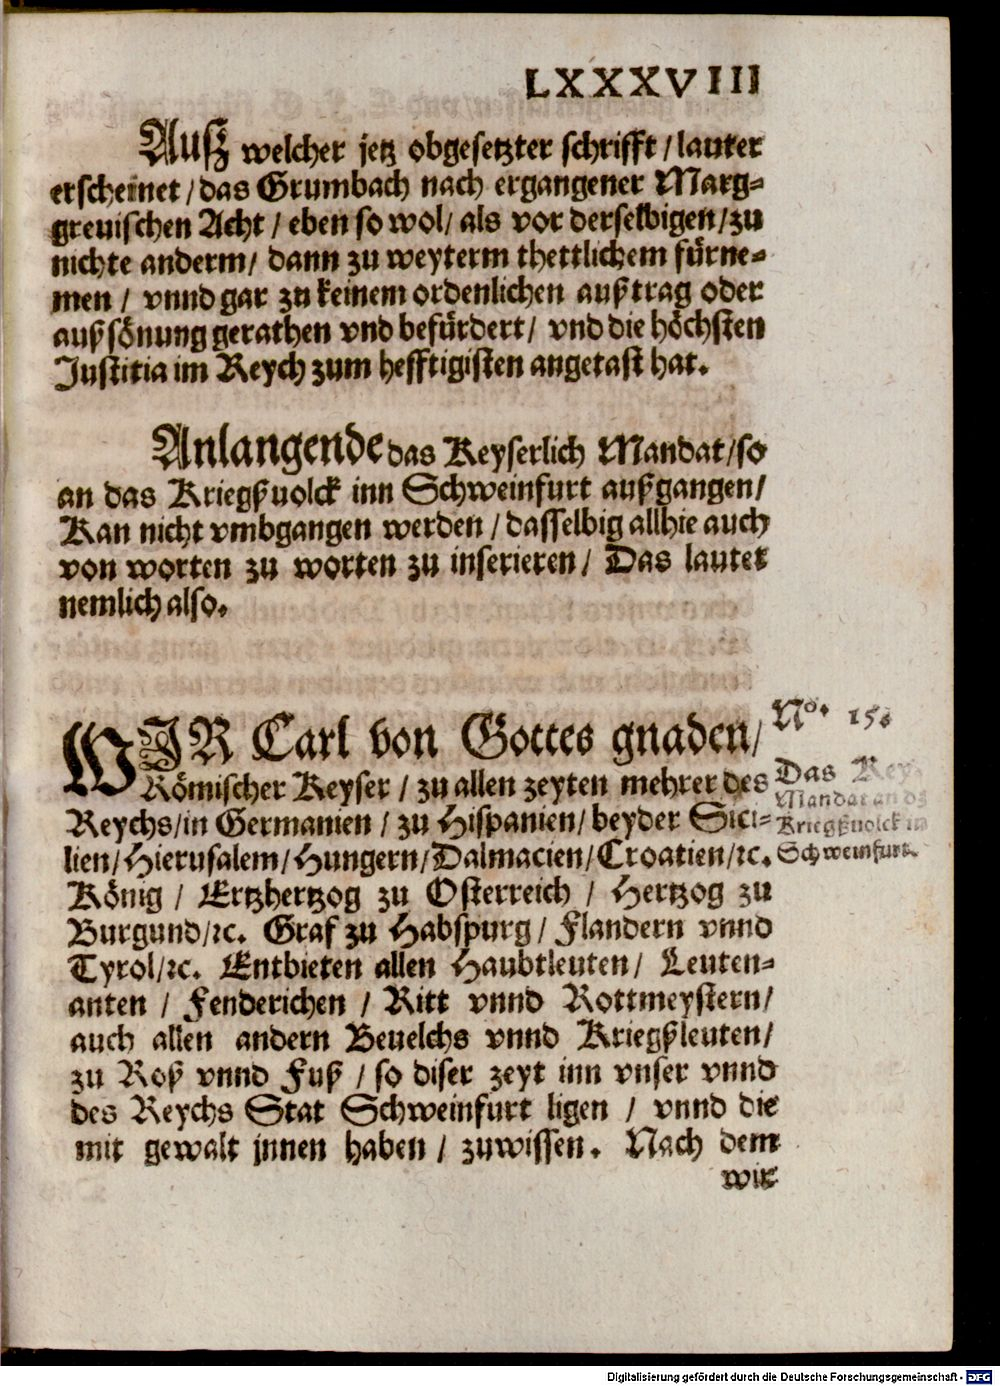 LXXXVIII
Ausz welcher jetz obgesetzter schrifft / lauter
erscheinet / das Grumbach nach ergangener Marg-
greuischen Acht / eben so wol / als vor derselbigen / zu
nichte anderm / dann zu weyterm thettlichem fürne-
men / vnnd gar zu keinem ordenlichen außtrag oder
außsönung gerathen vnd befürdert / vnd die höchsten
Justitia im Reych zum hefftigisten angetast hat.
Anlangende das Keyserlich Mandat / so
an das Kriegßuolck inn Schweinfurt außgangen /
Kan nicht vmbgangen werden / dasselbig allhie auch
von worten zu worten zu inserieren / Das lautet
nemlich also.
WIR Carl von Gottes gnaden /
Römischer Keyser / zu allen zeyten mehrer des
Reychs / in Germanien / zu Hispanien / beyder Sici-
lien / Hierusalem / Hungern / Dalmacien / Croatien / ꝛc.
König / Ertzhertzog zu Osterreich / Hertzog zu
Burgund / ꝛc. Graf zu Habspurg / Flandern vnnd
Tyrol / ꝛc. Entbieten allen Haubtleuten / Leuten-
anten / Fenderichen / Ritt vnnd Rottmeystern /
auch allen andern Beuelchs vnnd Kriegßleuten /
zu Roß vnnd Fuß / so diser zeyt inn vnser vnnd
des Reychs Stat Schweinfurt ligen / vnnd die
mit gewalt jnnen haben / zuwissen. Nach dem
wir
No. 15.
Das Key.
Mandat an dz
Kriegßuolck in
Schweinfurt.
Digitalisierung gefördert durch die Deutsche Forschungsgemeinschaft - DFG